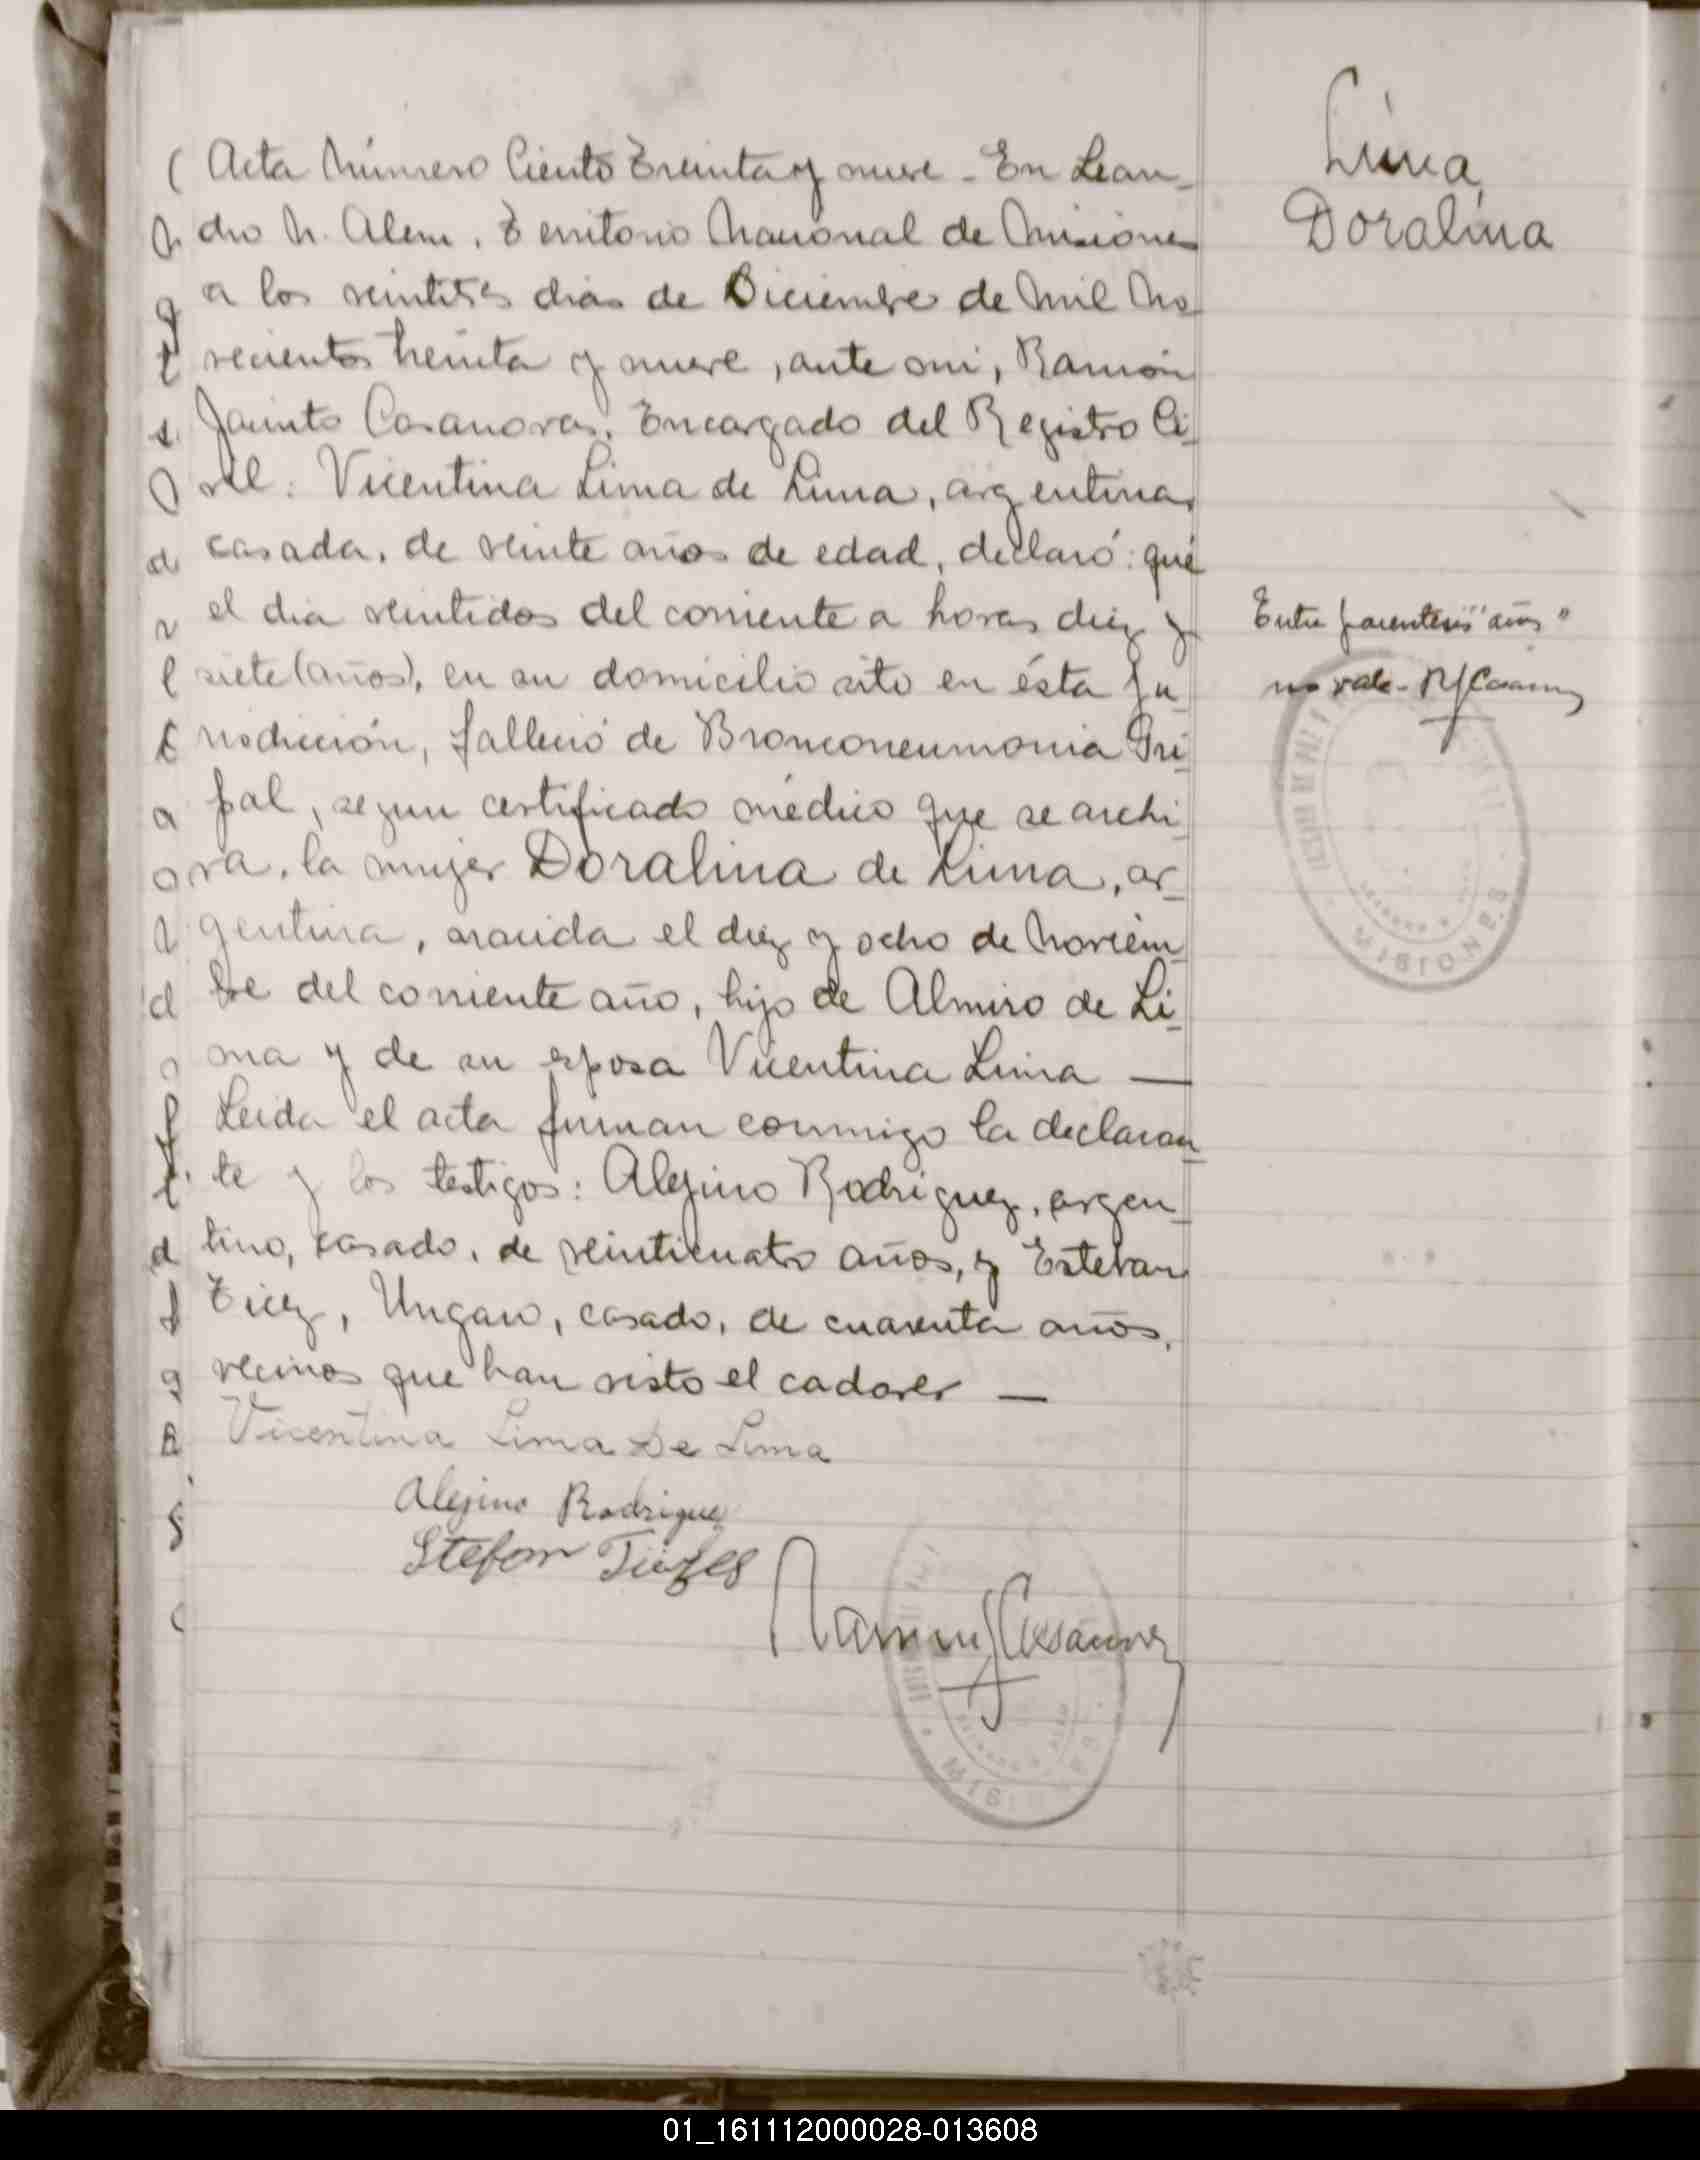 Acta Número Ciento Treinta y nueve - En Lean-
dro N. Alem, Territorio Nacional de Misiones
a los veintitres dias de Diciembre de Mil No-
vecientos treinta y nueve, ante mi, Ramón
Jacinto Casanovas, Encargado del Registro Ci-
vil: Vicentina Lima de Lima, argentina,
casada, de veinte años de edad, declaró: que
el dia veintidos del corriente a horas diez y
siete (años), en su domicilio sito en ésta Ju-
risdicción, falleció de Bronconeumonia Gri-
pal, segun certificado médico que se archi-
va, la mujer Doralina de Lima, ar-
gentina, nacida el diez y ocho de Noviem-
bre del corriente año, hijo de Almiro de Li-
ma y de su esposa Vicentina Lima —
Leida el acta firman conmigo la declaran-
te y los testigos: Alejino Rodriguez, argen-
tino, casado, de veinticuatro años, y Estevan
Ticz, Ungaro, casado, de cuarenta años,
vecinos que han visto el cadaver —
Vicentina Lima De Lima
Alejino Rodriguez
Stefan
Ramon J Casanovas
Lima,
Doralina
Entre parentesis "años"
no vale - RJCasanovas
MISIONES
01_161112000028-013608